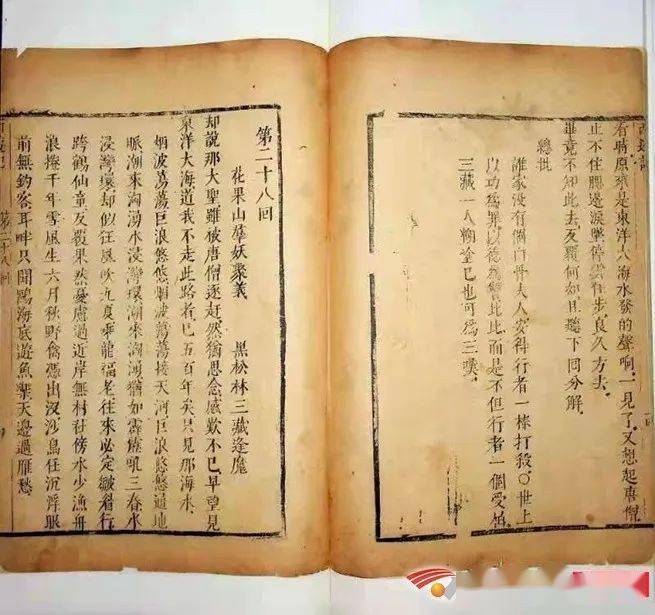 看時原來是東洋大海水發的聲響一見了又想起唐僧
止不住腮邊淚墜停雲住步良久方去
畢竟不知此去反覆何如且聽下回分解
總批
誰家沒有個白骨夫人安得行者一棒打殺○世上
以功爲罪以德爲讐比比而是不但行者一個受屈
三藏一人糊塗已也可爲三嘆
第二十八回
花果山羣妖聚義 黑松林三藏逢魔
却說那大聖雖被唐僧逐趕然猶思念感歎不已早望見
東洋大海道我不走此路者已五百年矣只見那海水
烟波蕩蕩巨浪悠悠烟波蕩蕩接天河巨浪悠悠通地
脈潮來洶湧水浸灣環潮來洶湧猶如霹靂吼三春水
浸灣環却似狂風吹九夏乘龍福老往來必定皺眉行
跨鶴仙童反覆果然憂慮過近岸無村社傍水少漁舟
浪捲千年雪風生六月秋野禽憑出沒沙鳥任沉浮眼
前無釣客耳畔只聞鷗海底遊魚樂天邊過雁愁